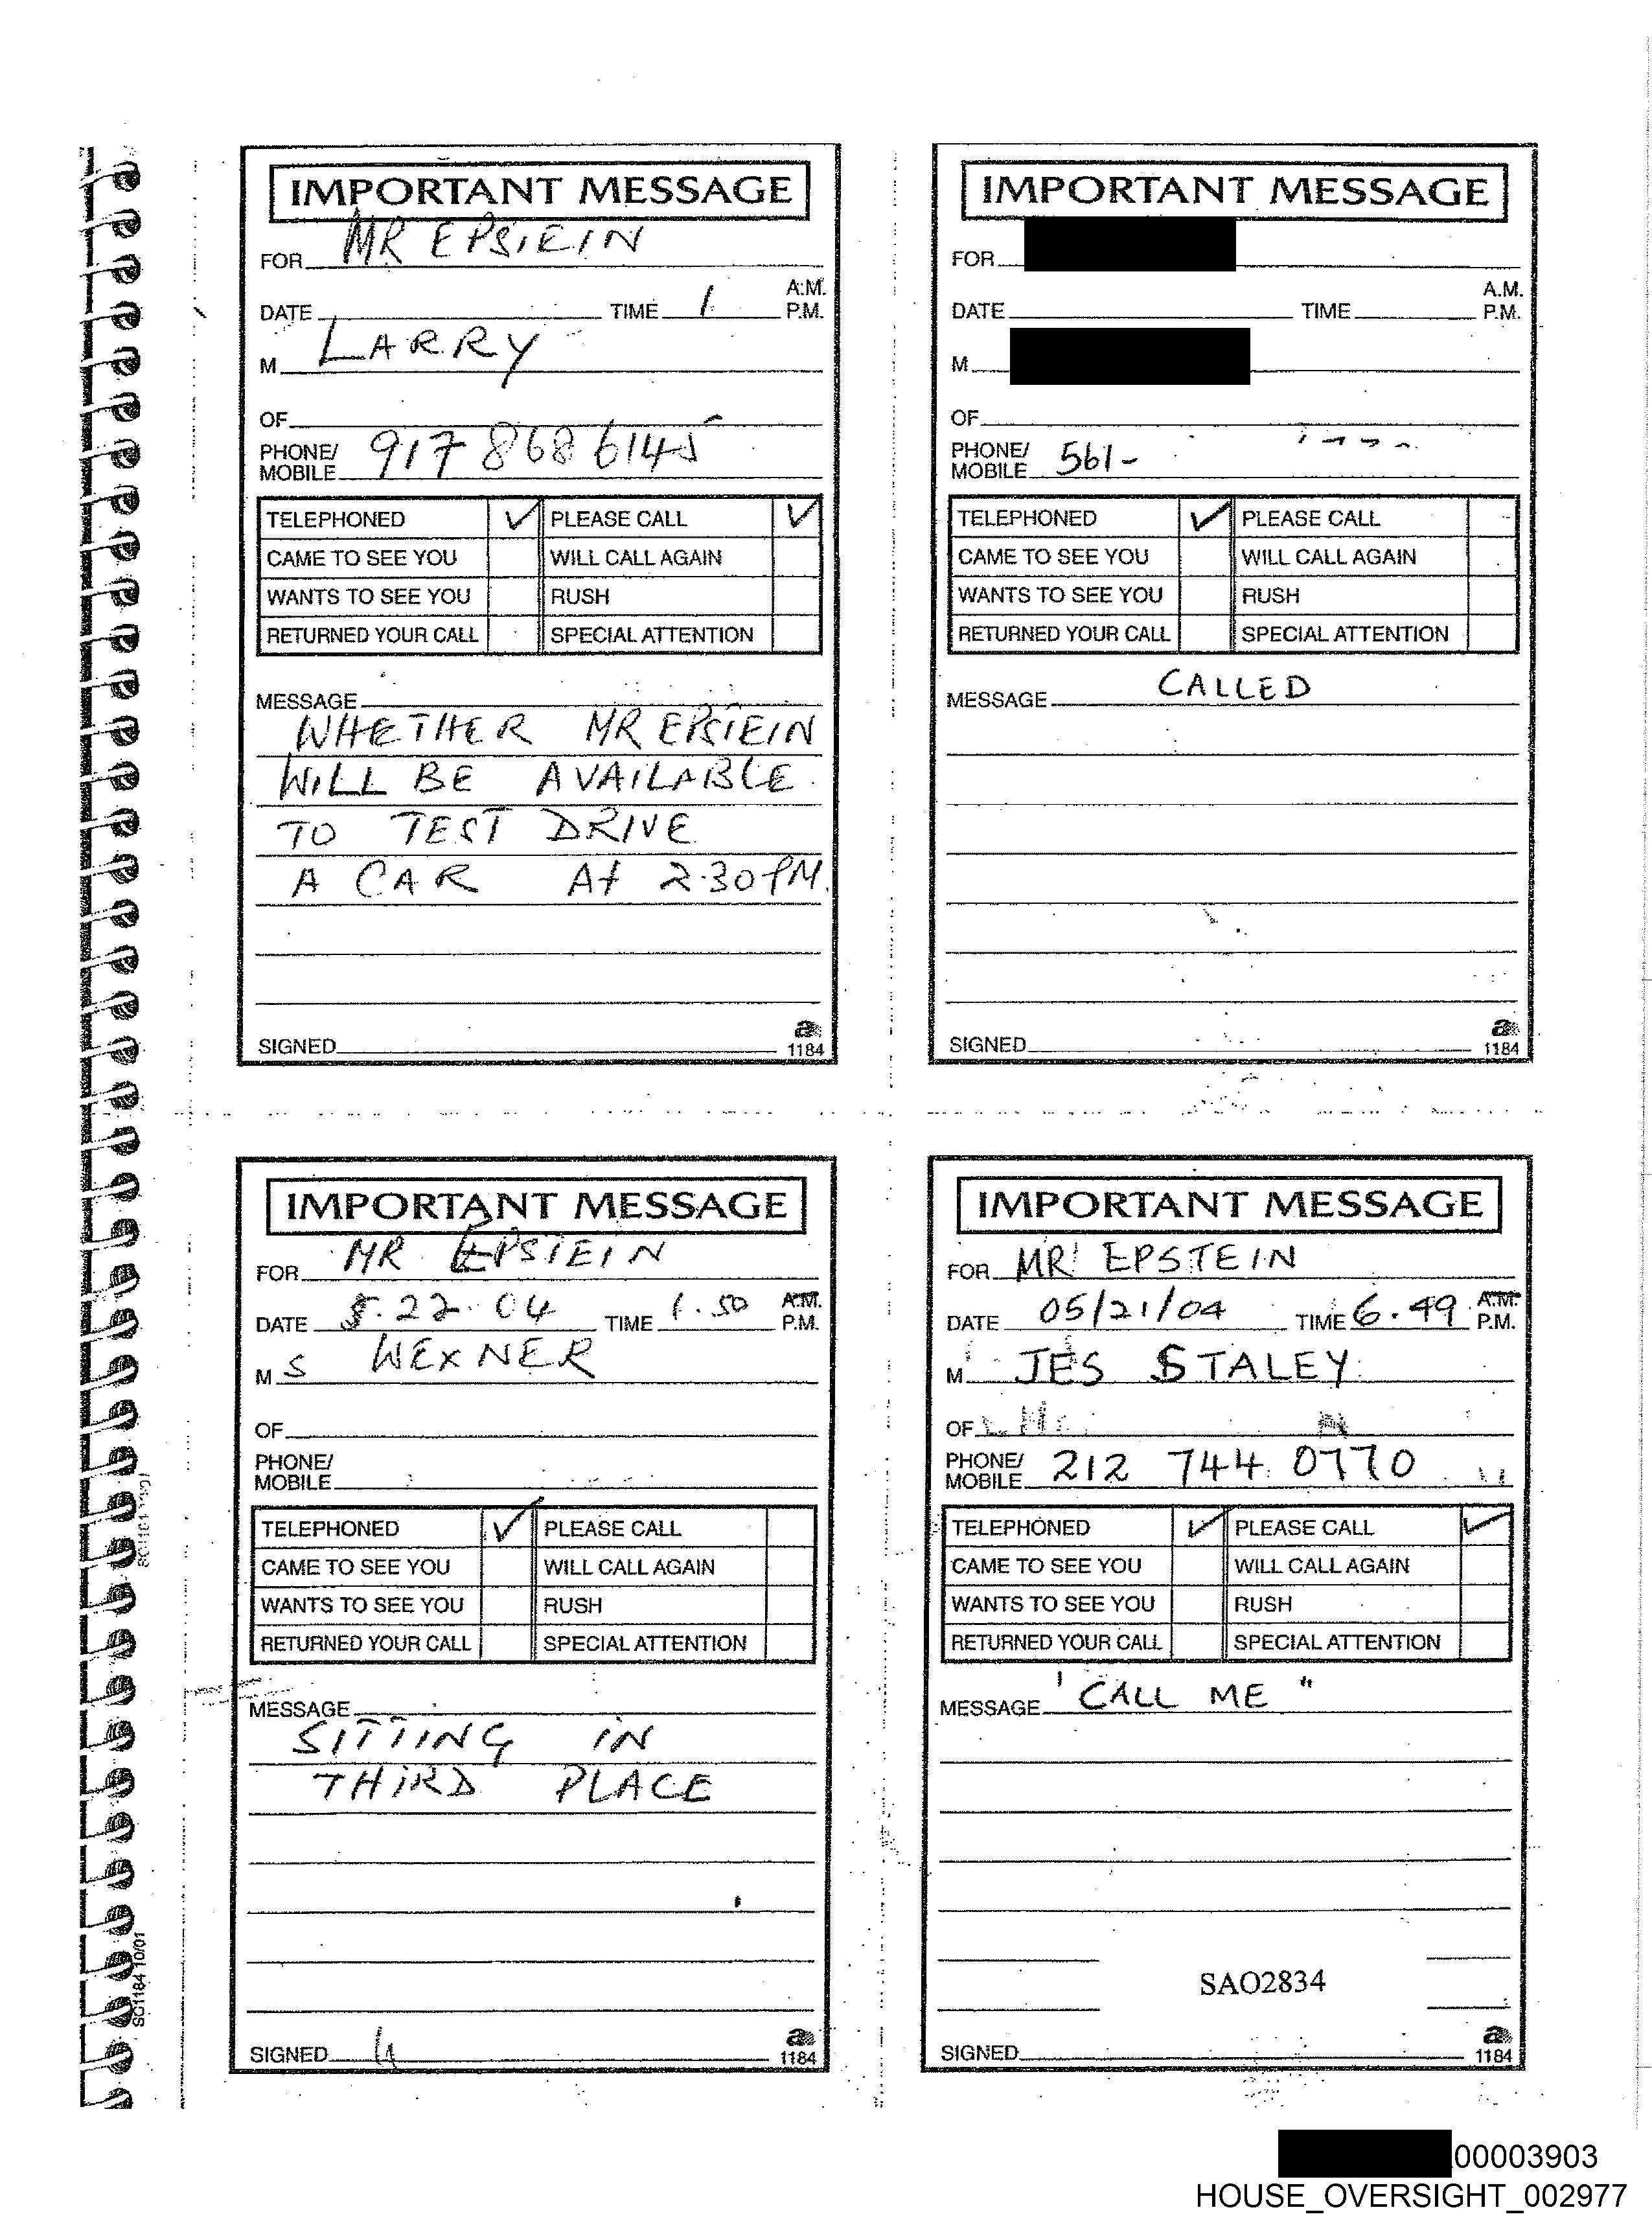 IMPORTANT MESSAGE
FOR MR EPSTEIN
DATE TIME 1 A.M. P.M.
M LARRY
OF
PHONE/ MOBILE 917 868 6145
TELEPHONED ✓ PLEASE CALL ✓
CAME TO SEE YOU WILL CALL AGAIN
WANTS TO SEE YOU RUSH
RETURNED YOUR CALL SPECIAL ATTENTION
MESSAGE
WHETHER MR EPSTEIN
WILL BE AVAILABLE
TO TEST DRIVE
A CAR At 2.30 PM.
SIGNED
a
1184
IMPORTANT MESSAGE
FOR
DATE TIME A.M. P.M.
M
OF
PHONE/ MOBILE 561-
TELEPHONED ✓ PLEASE CALL
CAME TO SEE YOU WILL CALL AGAIN
WANTS TO SEE YOU RUSH
RETURNED YOUR CALL SPECIAL ATTENTION
MESSAGE CALLED
SIGNED
a
1184
IMPORTANT MESSAGE
FOR MR EPSTEIN
DATE 5.22.04 TIME 1.50 A.M. P.M.
M S WEXNER
OF
PHONE/ MOBILE
TELEPHONED ✓ PLEASE CALL
CAME TO SEE YOU WILL CALL AGAIN
WANTS TO SEE YOU RUSH
RETURNED YOUR CALL SPECIAL ATTENTION
MESSAGE
SITTING IN
THIRD PLACE
SIGNED
a
1184
IMPORTANT MESSAGE
FOR MR EPSTEIN
DATE 05/21/04 TIME 6.49 A.M. P.M.
M JES STALEY
OF
PHONE/ MOBILE 212 744 0770
TELEPHONED ✓ PLEASE CALL ✓
CAME TO SEE YOU WILL CALL AGAIN
WANTS TO SEE YOU RUSH
RETURNED YOUR CALL SPECIAL ATTENTION
MESSAGE 'CALL ME"
SAO2834
SIGNED
a
1184
SC1184 10/01
00003903
HOUSE_OVERSIGHT_002977